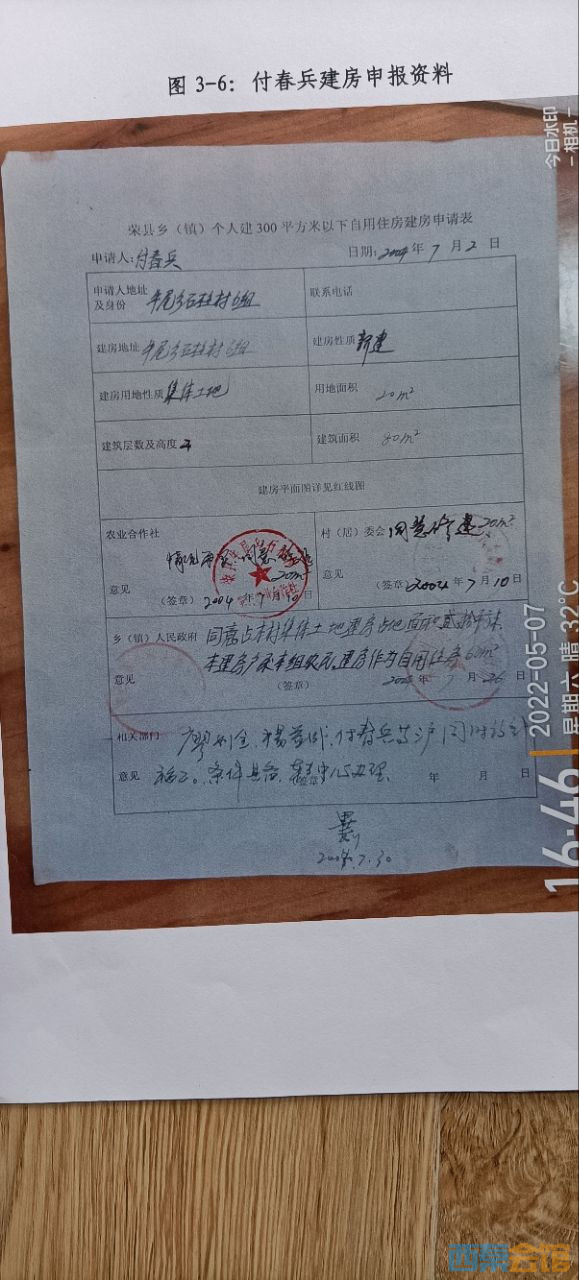 图 3-6：付春兵建房申报资料
荣县乡（镇）个人建300平方米以下自用住房建房申请表
申请人:付春兵 日期:2004年7月2日
申请人地址及身份 石柱村6组 联系电话
建房地址 石柱村6组 建房性质 新建
建房用地性质 集体土地 用地面积 20m²
建筑层数及高度 建筑面积 80m²
建房平面图详见红线图
农业合作社 村（居）委会 同意修建20m²
情况 同意 20m²
意见 意见
（签章）2004年7月10日 （签章）2004年7月10日
乡（镇）人民政府 同意占本村集体土地建房占地面积贰拾平米,
本建房户系本组农民,建房作为自用住房60m²
意见 （签章） 7月26日
相关部门 付春兵
意见 条件具备, 办理. 年 月 日
2004.7.30
今日水印
-相机-
16:46
2022-05-07
星期六 晴 32℃
西秦会馆